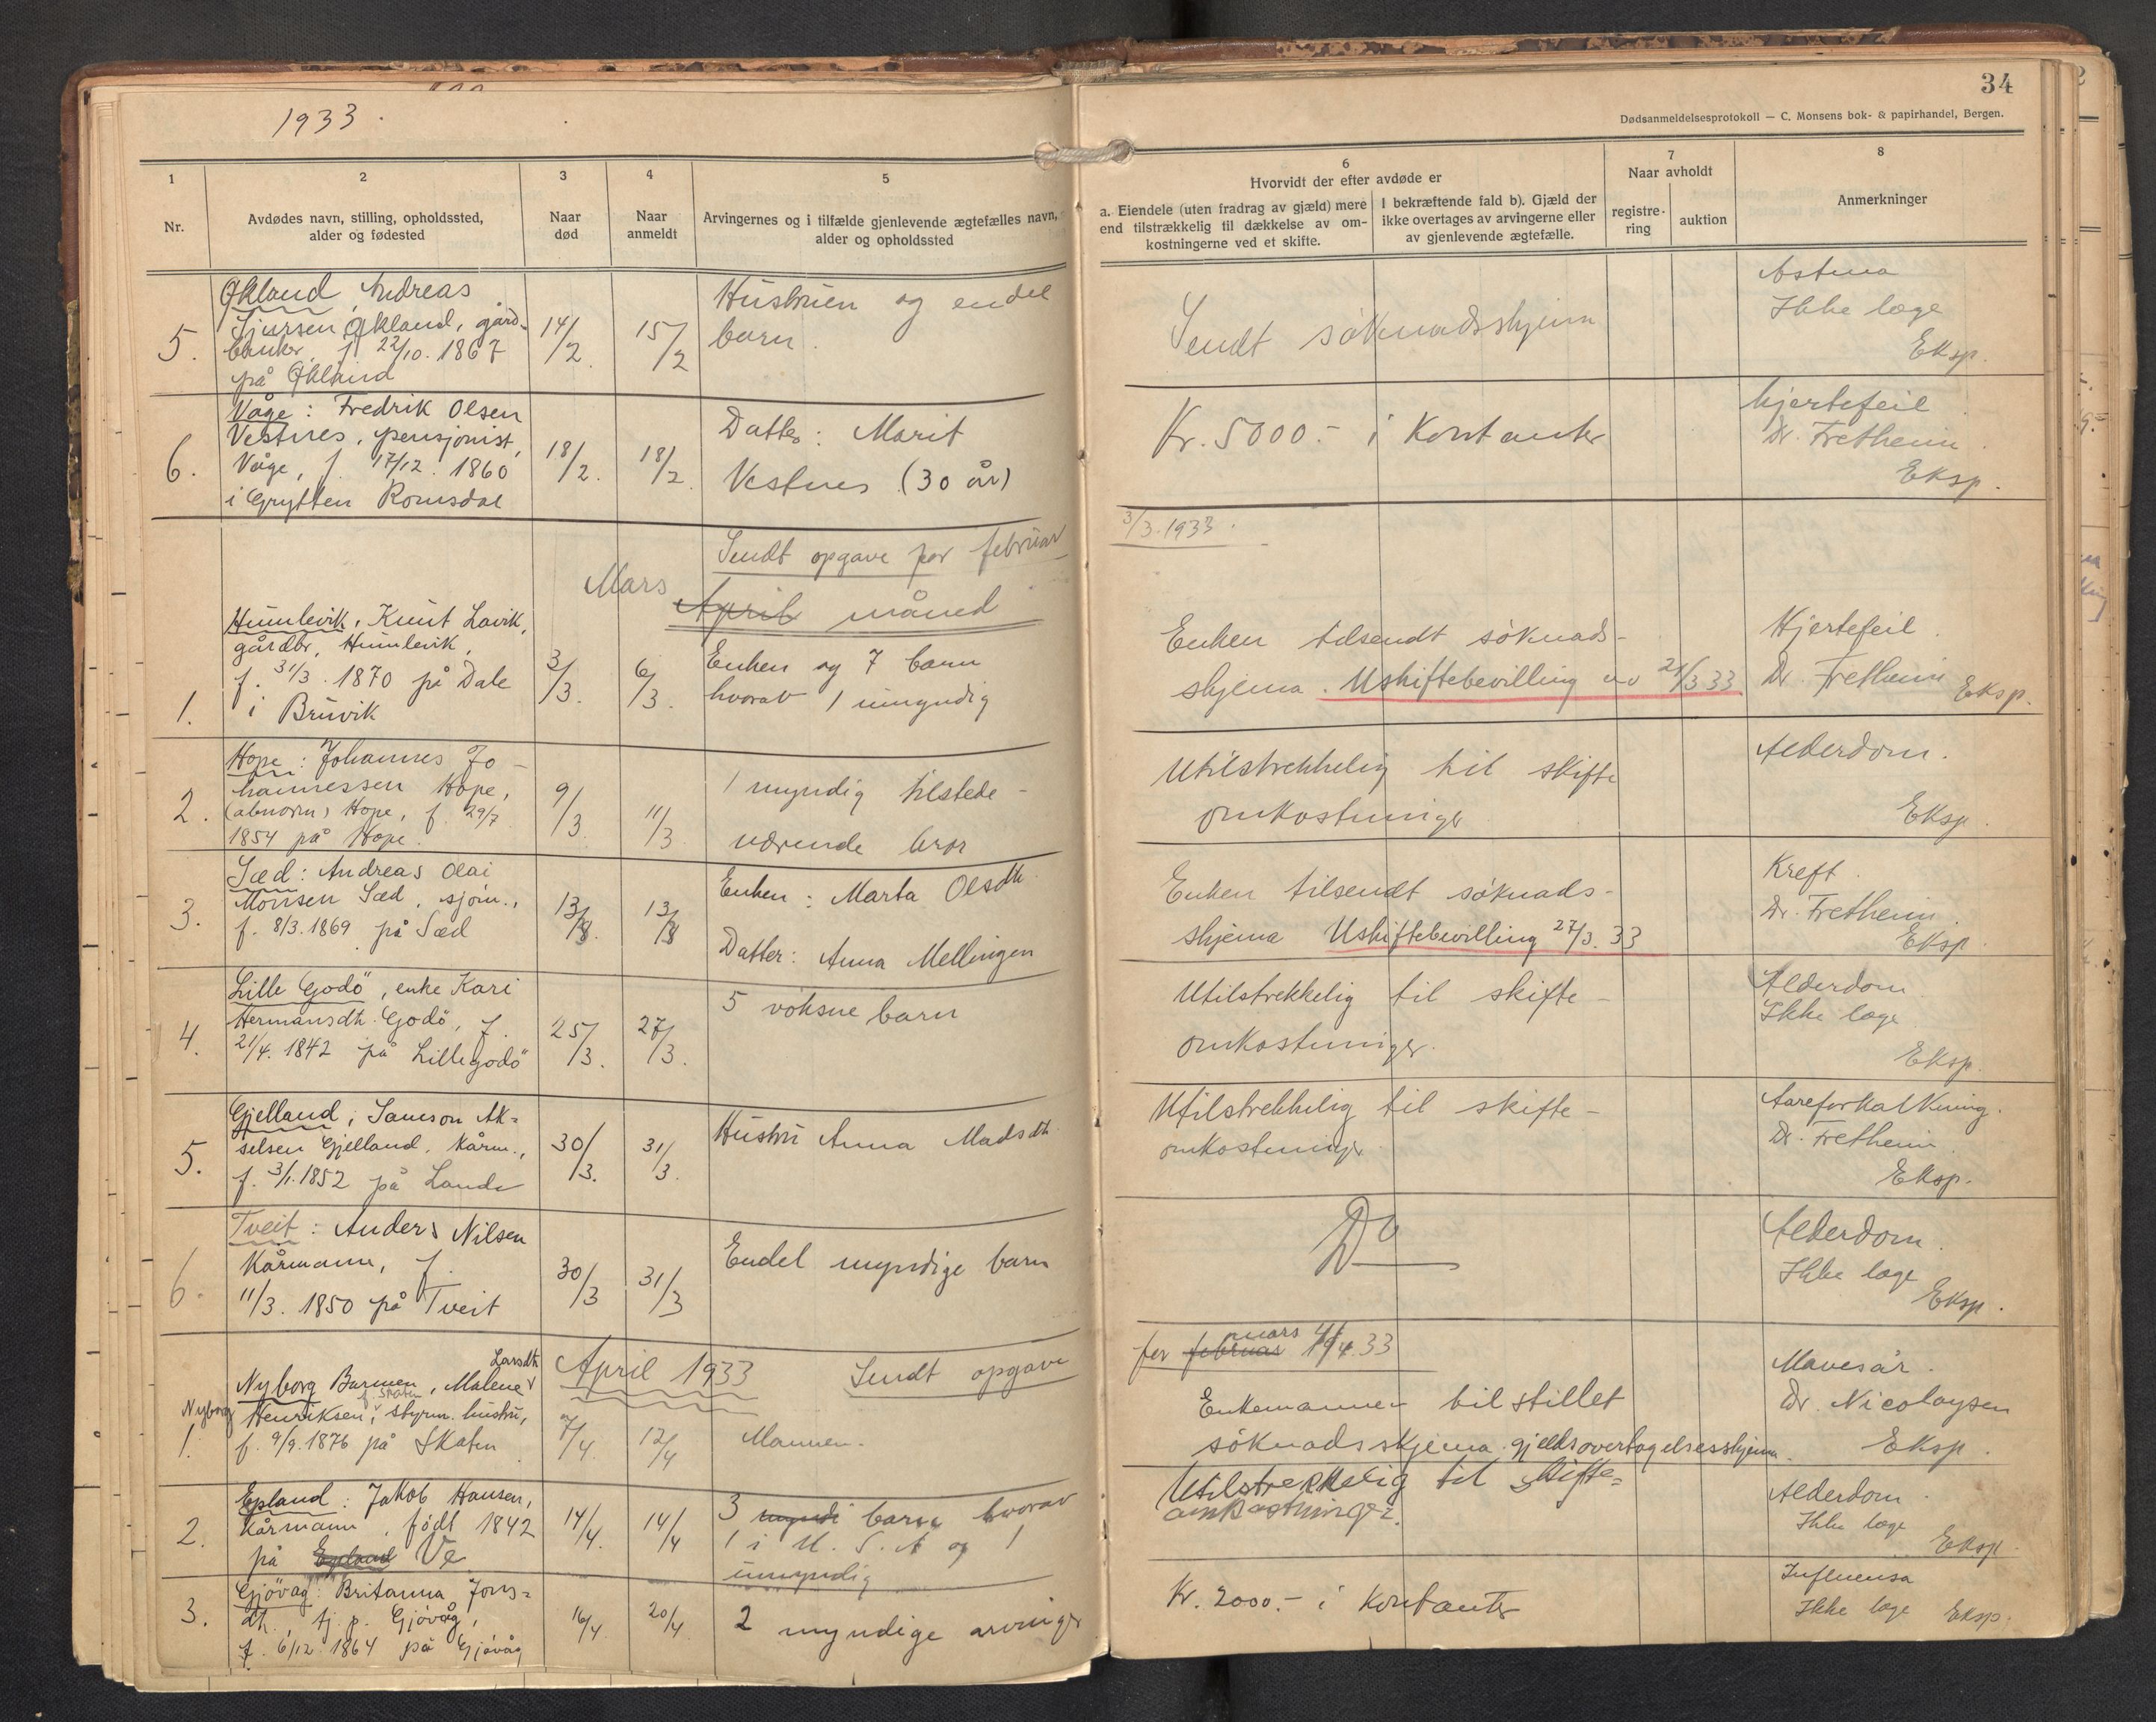 1933.
1
2
3
4
5
Nr.
Avdødes navn, stilling, opholdssted,
alder og fødested
Naar
død
Naar
anmeldt
Arvingernes og i tilfælde gjenlevende ægtefælles navn,
alder og opholdssted
34
Dødsanmeldelsesprotokoll — C. Monsens bok- & papirhandel, Bergen.
6
Hvorvidt der efter avdøde er
a. Eiendele (uten fradrag av gjæld) mere
end tilstrækkelig til dækkelse av om-
kostningerne ved et skifte.
I bekræftende fald b). Gjæld der
ikke overtages av arvingerne eller
av gjenlevende ægtefælle.
7
Naar avholdt
registre-
ring
auktion
8
Anmerkninger
5.
Økland, Andreas
Sjursen Økland, gård-
bruker, f. 22/10. 1867
på Økland
14/2.
15/2
Hustruen og endel
barn.
Sendt söknadsskjema
Astma
Ikke læge
Eksp.
6.
Våge: Fredrik Olsen
Vestnes, pensjonist,
Våge, f. 17/12. 1860
i Grytten Romsdal
18/2.
18/2.
Datter: Marit
Vestnes (30 år)
Kr. 5000.- i Kontanter
Hjertefeil.
Dr. Fretheim.
Eksp.
Sendt opgave for februar
3/3.1933.
Mars
April måned
1.
Humlevik, Knut Lavik,
gårdbr, Humlevik,
f. 31/3. 1870 på Dale
i Bruvik
3/3.
6/3.
Enken og 7 barn
hvorav 1 umyndig
Enken tilsendt söknads-
skjema. Uskiftebevilling av 21/3 33
Hjertefeil.
Dr. Fretheim
Eksp.
2.
Hope: Johannes Jo-
hannessen Hope,
(abnorm) Hope, f. 29/7
1854 på Hope.
9/3.
11/3
1 myndig tilstede-
værende bror
Utilstrekkelig til skifte
omkostninger
Alderdom.
Eksp.
3.
Sæd: Andreas Olai
Monsen Sæd, sjöm.,
f. 8/3.1869 på Sæd
13/3.
13/3
Enken: Marta Olsdtr.
Datter: Anna Mellingen
Enken tilsendt söknads-
skjema Uskiftebevilling 27/3. 33
Kreft.
Dr. Fretheim.
Eksp.
4.
Lille Godö, enke Kari
Hermansdtr. Godö, f.
21/4. 1842 på Lillegodö
25/3.
27/3.
5 voksne barn
Utilstrekkelig til skifte-
omkostninger.
Alderdom
Ikke læge
Eksp.
5.
Gjelland; Samson Ak=
selsen Gjelland, kårm.,
f. 3/1.1852 på Lande
30/3.
31/3.
Hustru Anna Madsdtr.
Utilstrekkelig til skifte-
omkostninger
Aareforkalkning.
Dr. Fretheim.
Eksp.
6.
Tveit: Anders Nilsen
Kårmann, f.
11/3. 1850 på Tveit
30/3
31/3
Endel myndige barn
Do
Alderdom.
Ikke læge
Eksp.
April 1933
Sendt opgave
for februar mars 4/4.33
1.
Nyborg Barmen, Malene Larsdtr
f. Skaten
Nyborg Henriksen, styrm. hustru,
f. 9/9.1876 på Skaten
7/4.
12/4
Mannen.
Enkemannen tilstillet
söknadsskjema. gjeldsovertagelsesskjema.
Mavesår.
Dr. Nicolaysen
Eksp.
2.
Epland: Jakob Hansen,
Kårmann, født 1842
på Epland Ve
14/4.
14/4
3 myndi barn hvorav
1 i U.S.A og 1
umyndig
Utilstrekkelig til skifte=
omkostninger.
Alderdom.
Ikke læge
Eksp.
3.
Gjövåg: Britanna Jons=
dt. tj. p. Gjövåg,
f. 6/12. 1864 på Gjövåg
16/4
20/4
2 myndige arvinger
Kr. 2000.- i Kontanter
Influensa
Ikke læge
Eksp.